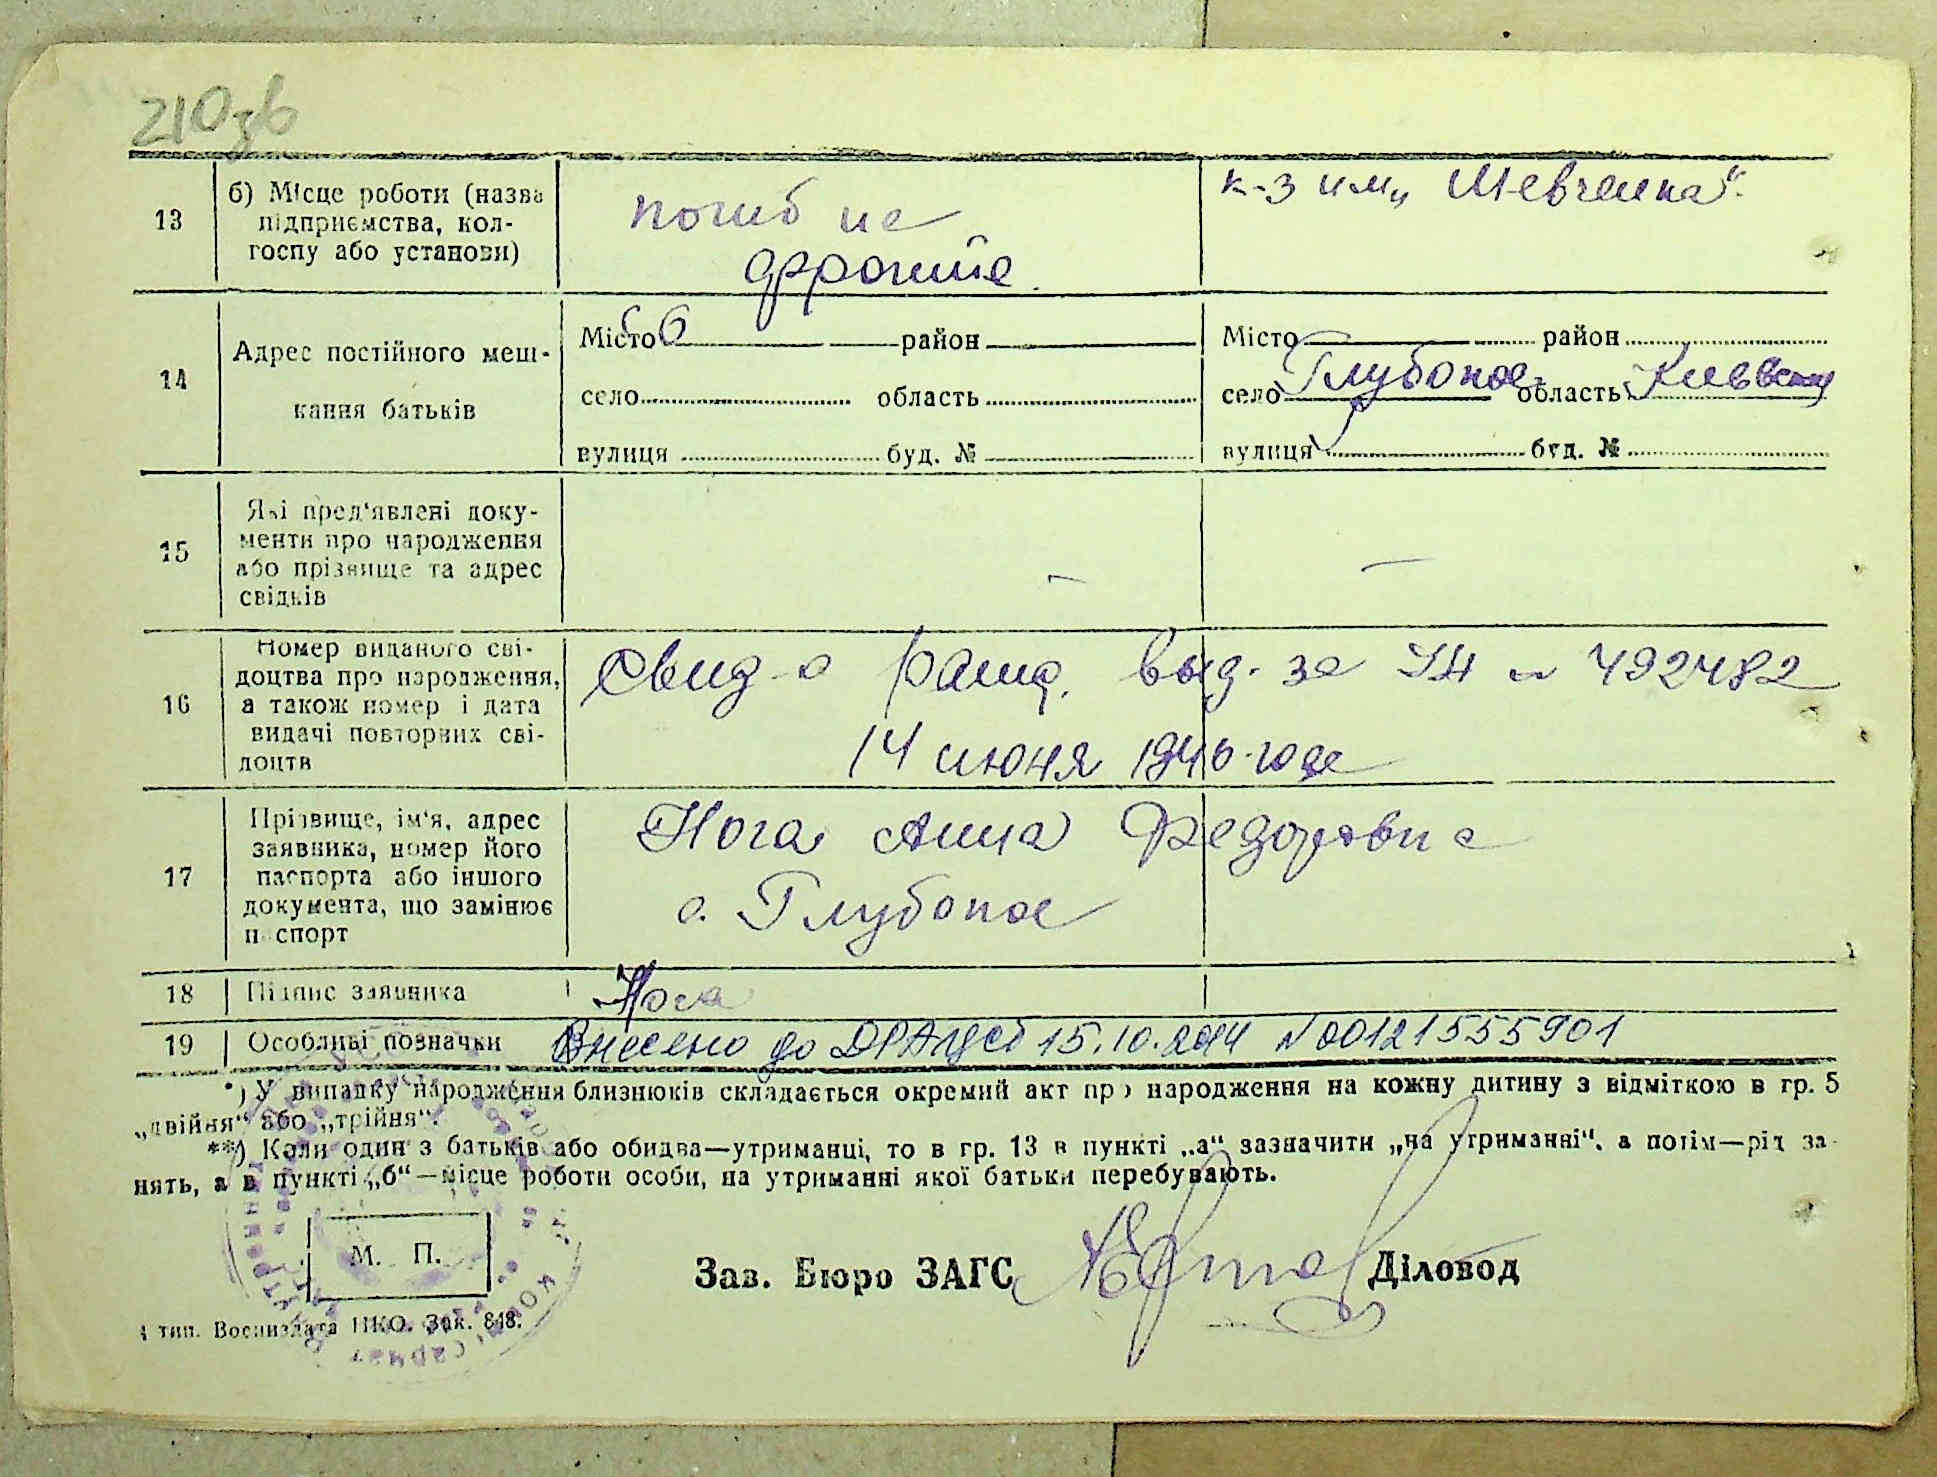 210зв
13
б) Місце роботи (назва
підприємства, кол-
госпу або установи)
погиб на
фронте
к-з им. „Шевченка“.
14
Адрес постійного меш-
кання батьків
Місто район
село область
вулиця буд. №
Місто район
село Глубокое область Киевская
вулиця буд. №
15
Які пред'явлені доку-
менти про народження
або прізвище та адрес
свідків
—
—
16
Номер виданого сві-
доцтва про народження,
а також номер і дата
видачі повторних сві-
доцтв
Свид-о выд. за № 492482
14 июня 1946 года
17
Прізвище, ім'я, адрес
заявника, номер його
паспорта або іншого
документа, що замінює
паспорт
Нога Анна Федоровна
с. Глубокое
18
Підпис заявника
Нога
19
Особливі позначки
Внесено до ДРАЦСб 15.10.2014 №00121555901
*) У випадку народження близнюків складається окремий акт про народження на кожну дитину з відміткою в гр. 5
„двійня“ або „трійня“.
**) Коли один з батьків або обидва—утриманці, то в гр. 13 в пункті „а“ зазначити „на утриманні“, а потім—рід за-
нять, а в пункті „б“—місце роботи особи, на утриманні якої батьки перебувають.
М. П.
Зав. Бюро ЗАГС
Діловод
4 тип. Воениздата НКО. Зак. 848.